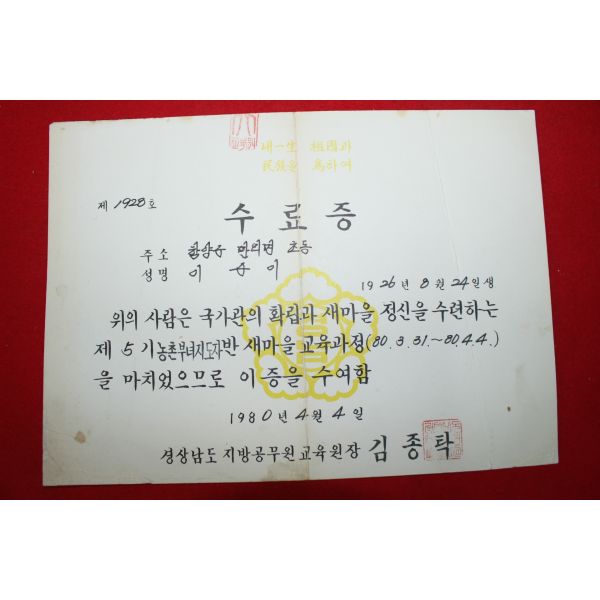 내一生 祖国과
民族을 為하여
제 1928 호
수료증
주소 함양군 안의면 초동
성명 이 이
1926년 8월 24일생
위의 사람은 국가관의 확립과 새마을 정신을 수련하는
제 5 기 농촌부녀지도자반 새마을교육과정(80.3.31.~80.4.4.)
을 마치었으므로 이 증을 수여함
1980년 4월 4일
경상남도 지방공무원교육원장 김종탁